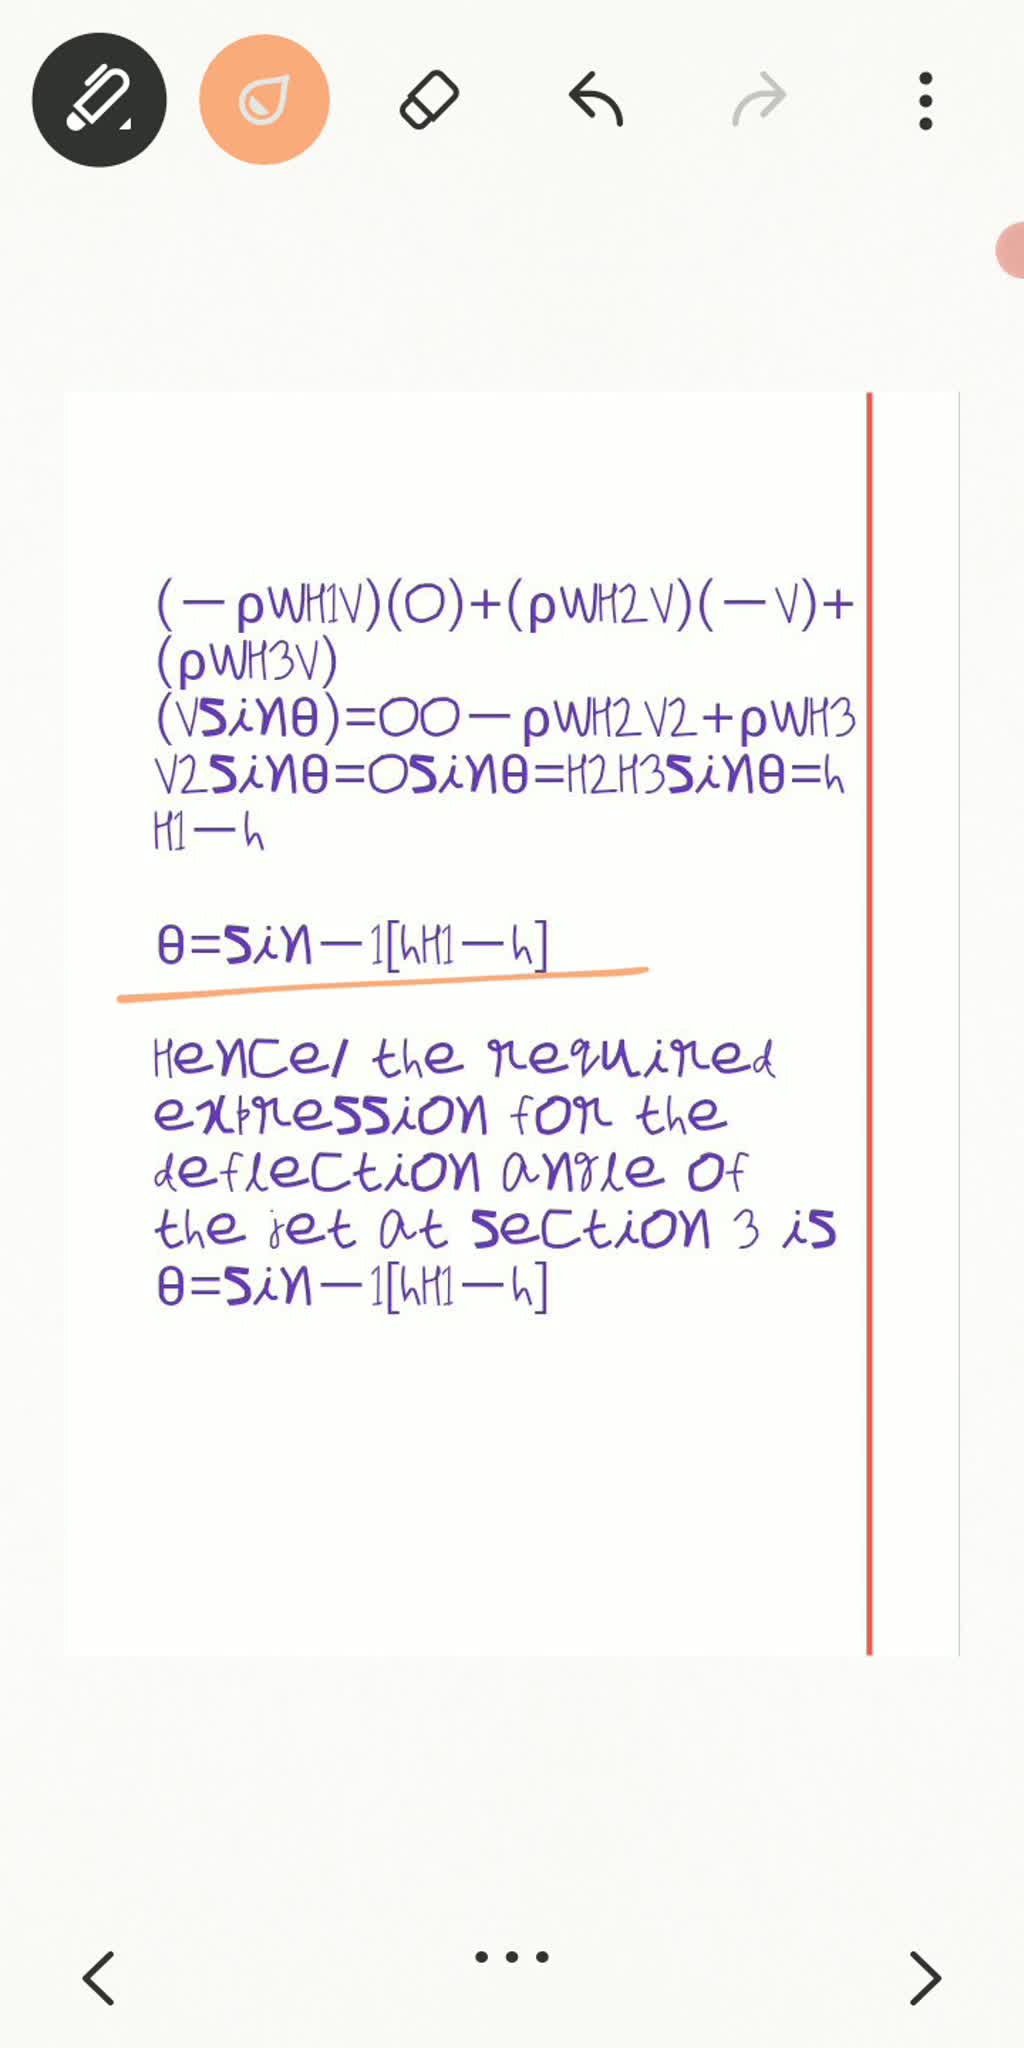 (−ρWH1V)(0)+(ρWH2V)(−V)+
(ρWH3V)
(Vsinθ)=00−ρWH2V2+ρWH3
V2sinθ=0sinθ=H2H3sinθ=h
H1−h
θ=sin−1[hH1−h]
Hence/ the required
expression for the
deflection angle of
the jet at section 3 is
θ=sin−1[hH1−h]